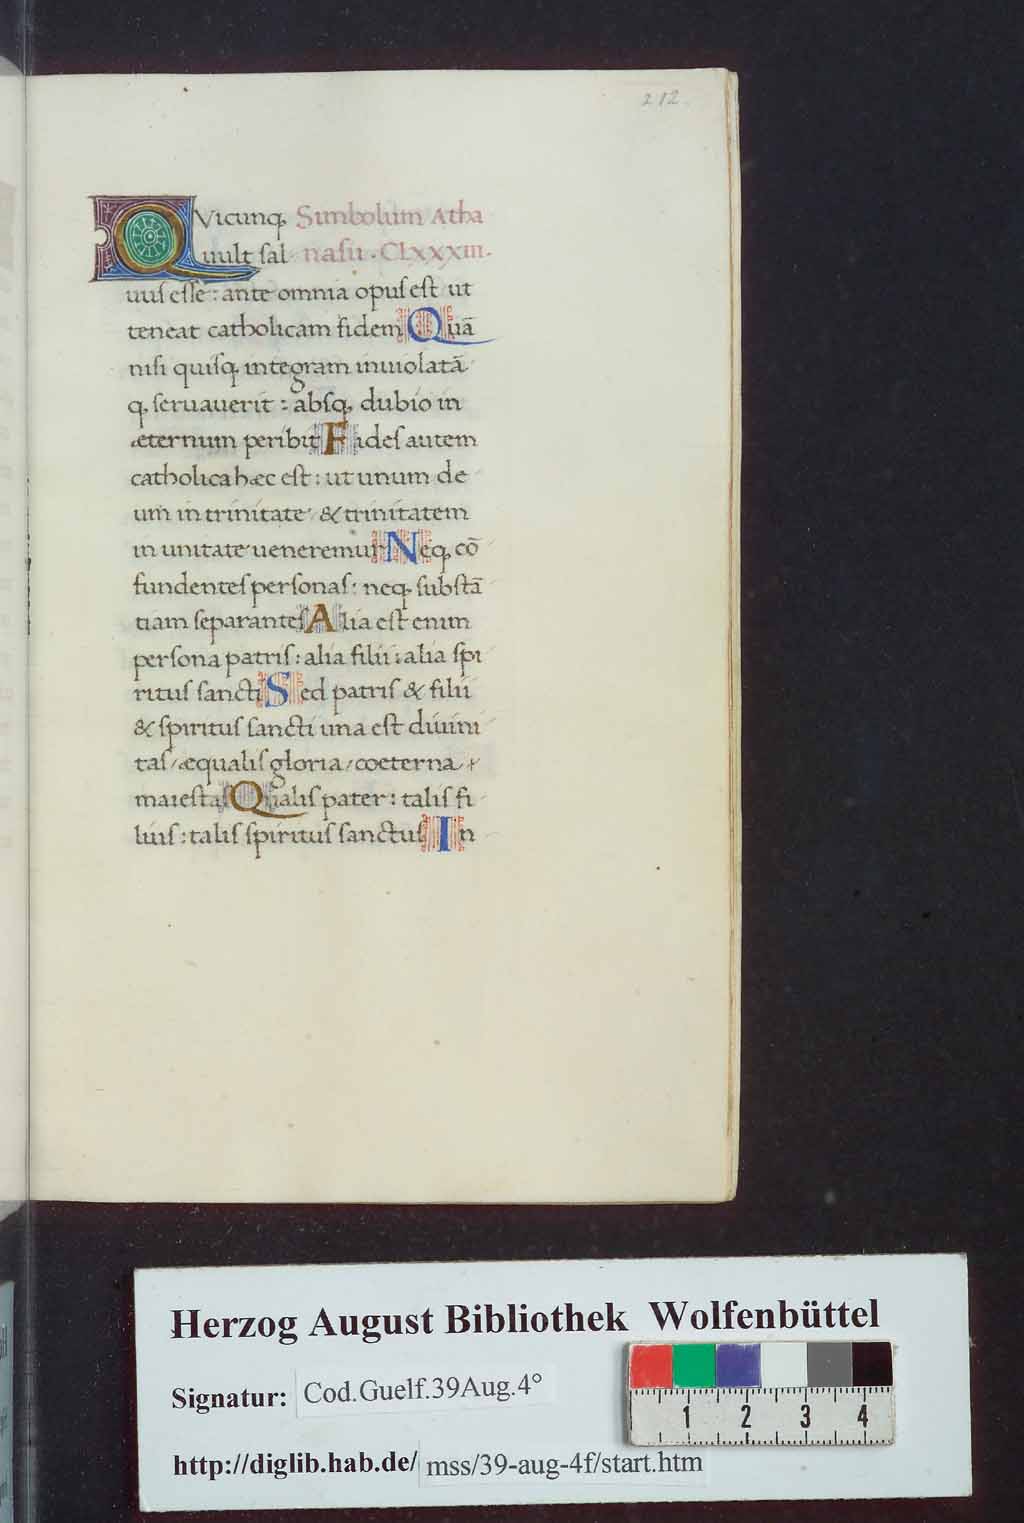 212.
QVicunq, Simbolum Atha
uult sal nasii · CLXXXIII·
uus esse : ante omnia opus est ut
teneat catholicam fidem Quā
nisi quisq, integram inuiolatā
q, seruauerit : absq, dubio in
æternum peribit Fides autem
catholica hæc est : ut unum de
um in trinitate & trinitatem
in unitate ueneremur Neq, cō
fundentes personas : neq, substā
tiam separantes Alia est enim
persona patris : alia filii : alia spi
ritus sancti Sed patris & filii
& spiritus sancti una est diuini
tas / æqualis gloria / coeterna
maiestas Qualis pater : talis fi
lius : talis spiritus sanctus In
Herzog August Bibliothek Wolfenbüttel
Signatur: Cod.Guelf.39Aug.4°
http://diglib.hab.de/ mss/39-aug-4f/start.htm
1 2 3 4